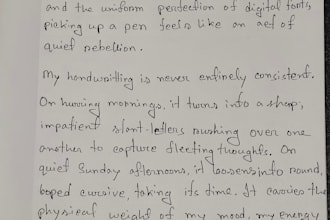 and the uniform perfection of digital fonts,
picking up a pen feels like an act of
quiet rebellion.
My handwriting is never entirely consistent.
On hurring mornings, it turns into a sharp,
impatient slant-letters rushing over one
another to capture fleeting thoughts. On
quiet Sunday afternoons, it loosens into round,
looped cursive, taking its time. It carries the
physical weight of my mood, my energy,